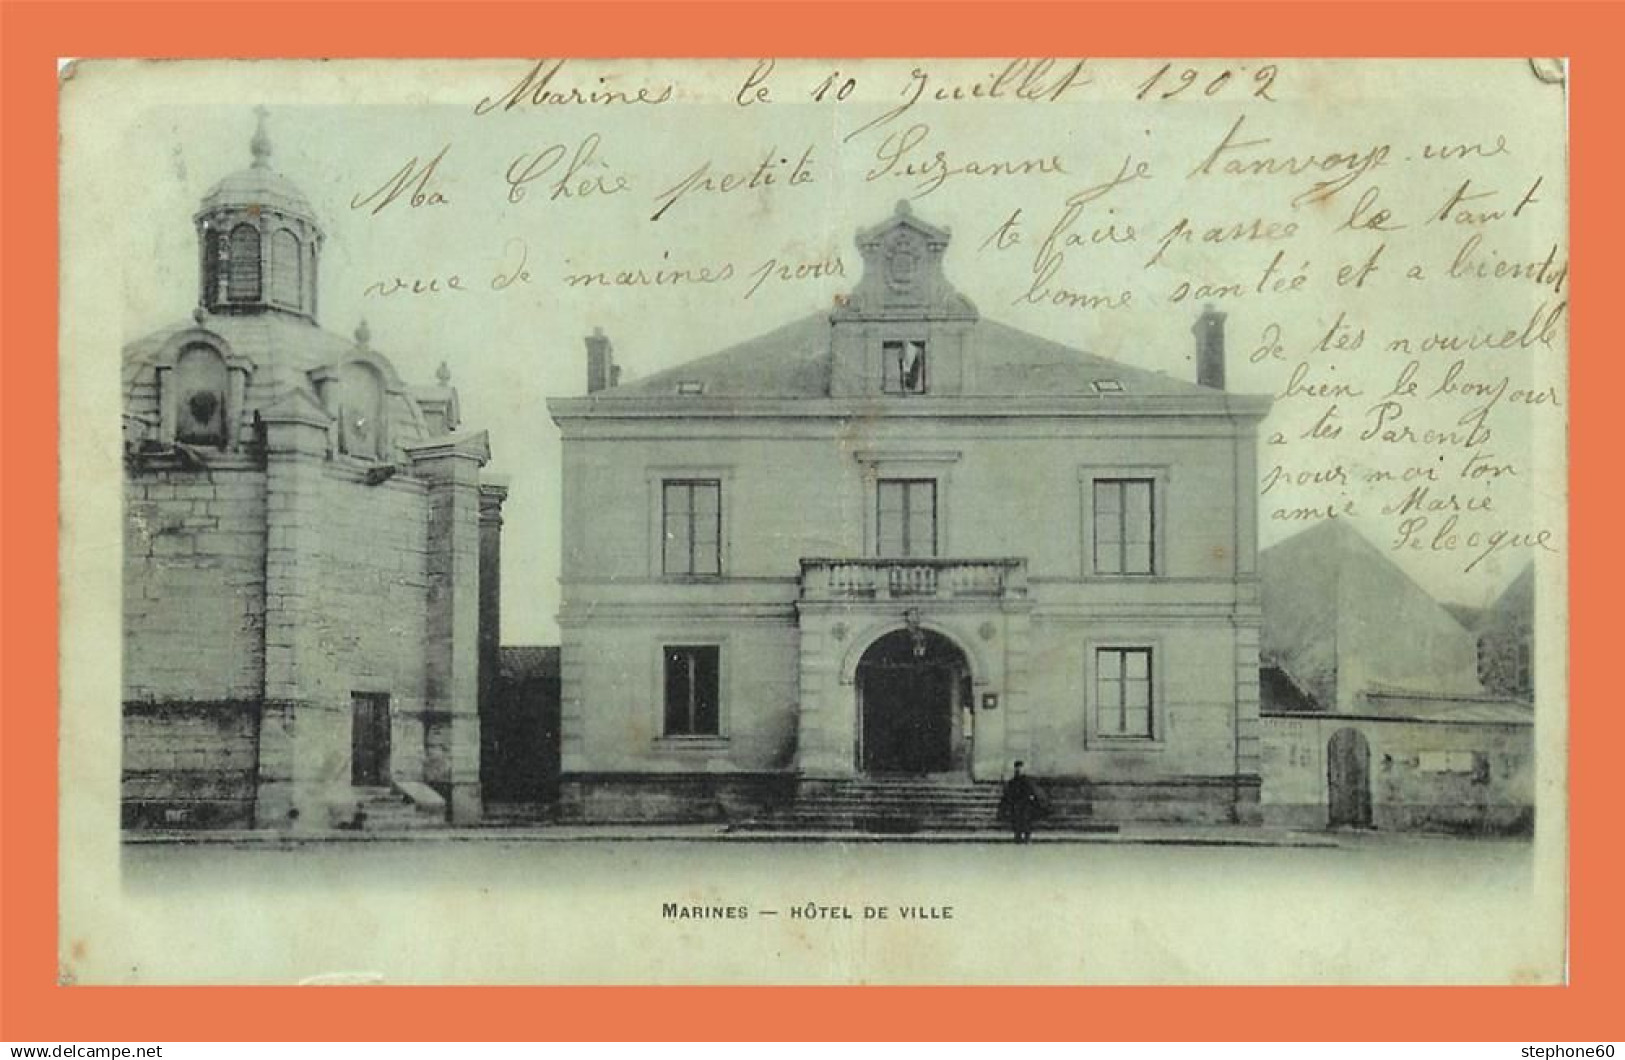 Marines le 10 Juillet 1902
Ma Chère petite Suzanne je tanvoye une
vue de marines pour te faire passee le tant
bonne santée et a bientot
de tes nouvelle
bien le bonjour
a tes Parents
pour moi ton
amie Marie
Pelecque
MARINES — HÔTEL DE VILLE
www.delcampe.net
stephone60